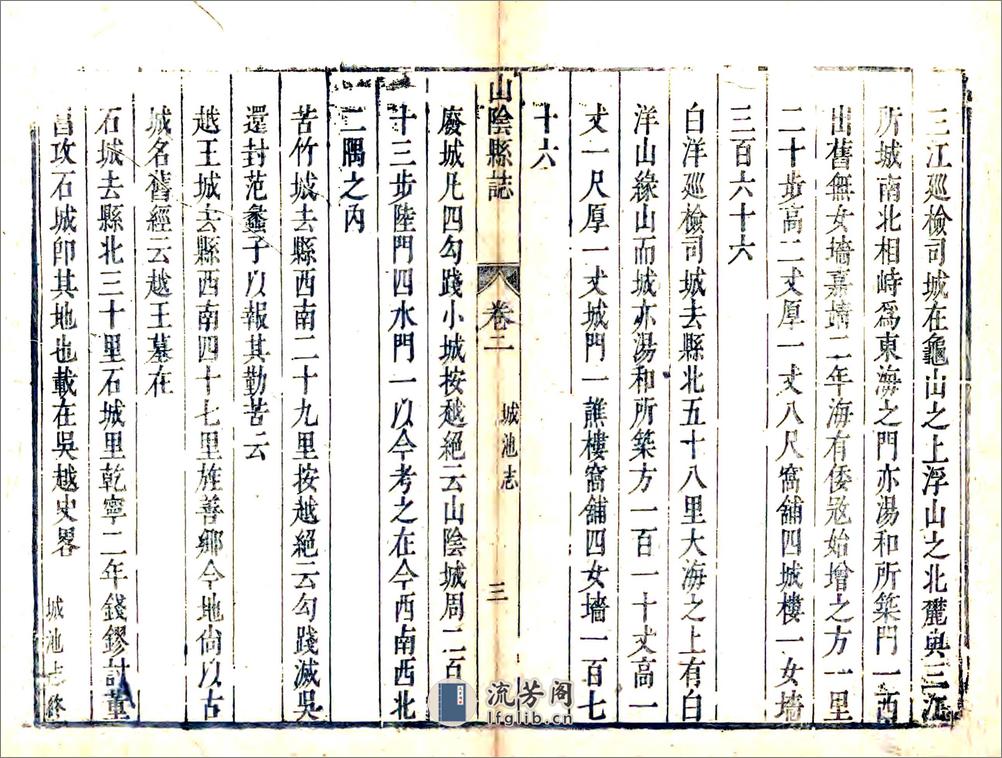 三江廵檢司城在龜山之上浮山之北麓與三江
所城南北相峙爲東海之門亦湯和所築門一西
出舊無女墻嘉靖二年海有倭宼始增之方一里
二十步高二丈厚一丈八尺窩舖四城樓一女墻
三百六十六
白洋廵檢司城去縣北五十八里大海之上有白
洋山緣山而城亦湯和所築方一百一十丈高一
丈一尺厚一丈城門一譙樓窩舖四女墻一百七
十六
山陰縣誌
卷二
城池志
三
廢城凡四勾踐小城按越絕云山陰城周二百
十三步陸門四水門一以今考之在今西南西北
二隅之内
苦竹城去縣西南二十九里按越絕云勾踐滅吳
還封范蠡子以報其勤苦云
越王城去縣西南四十七里旌善鄉今地尙以古
城名舊經云越王墓在
石城去縣北三十里石城里乾寧二年錢鏐討董
昌攻石城卽其地也載在吳越史畧
城池志終
流芳阁
lfglib.cn